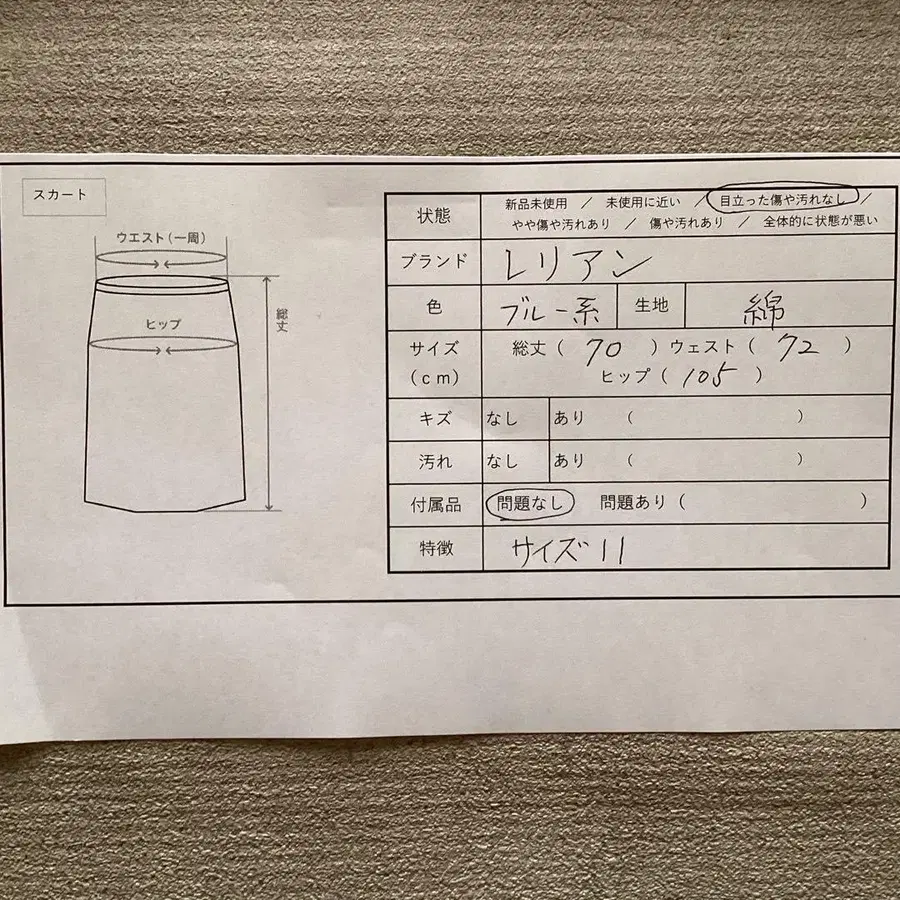 スカート
ウエスト(一周)
ヒップ
総丈
状態 新品未使用 / 未使用に近い / 目立った傷や汚れなし /
やや傷や汚れあり / 傷や汚れあり / 全体的に状態が悪い
ブランド レリアン
色 ブルー系 生地 綿
サイズ 総丈( 70 )ウェスト( 72 )
(cm) ヒップ( 105 )
キズ なし あり ( )
汚れ なし あり ( )
付属品 問題なし 問題あり( )
特徴 サイズ11